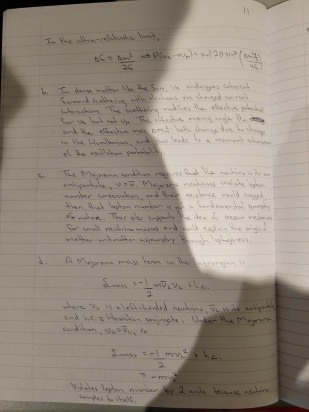 11
In the ultra-relativistic limit,
b. In dense matter like the Sun, νe undergoes coherent
forward scattering with electrons via charged current
interactions. This scattering modifies the effective potential
for νe but not νμ. The effective mixing angle
and the effective mass both change due to change
in the Hamiltonian, and this leads to a resonant enhancement
of the oscillation probability.
c. The Majorana condition requires that the neutrino is its own
antiparticle, Majorana neutrinos violate lepton
number conservation, and their existence would suggest
then that lepton number is not a fundamental symmetry
of nature. This also supports the idea of seesaw mechanism
for small neutrino masses and could explain the origin of
matter-antimatter asymmetry through leptogenesis.
d. A Majorana mass term in the Lagrangian is
where νL is a left-handed neutrino, is its antiparticle
and h.c. = Hermitian conjugate. Under the Majorana
condition, so
Violates lepton number by 2 units because neutrino
couples to itself.